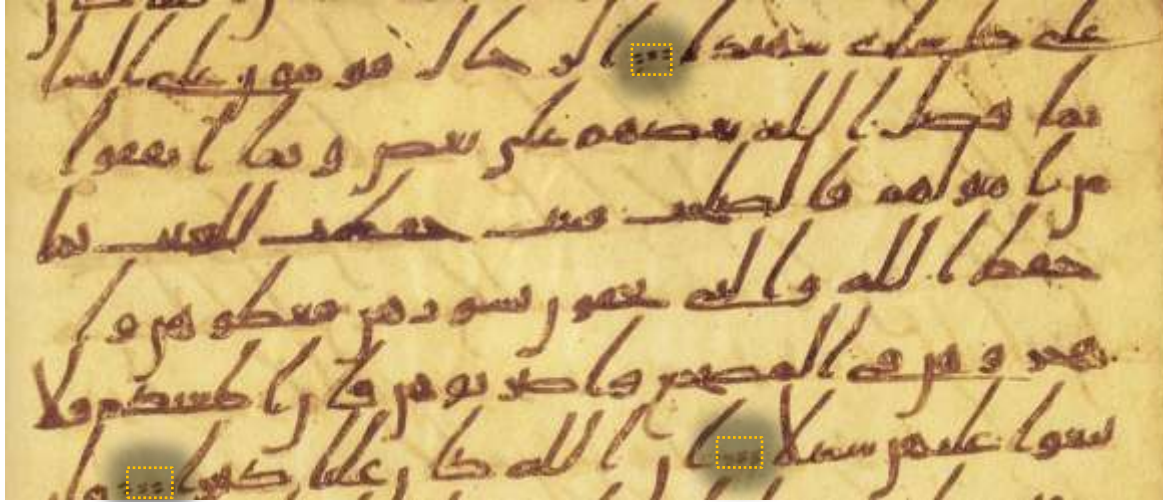 على كل شى شهيدا الرجال قومون على النسا
بما فضل الله بعضهم على بعض وبما انفقوا
من امولهم فالصلحت قنتت حفظت للغيب بما
حفظ الله والتى تخفون نشوزهن فعظوهن وا
هجروهن فى المضجع واضربوهن فان اطعنكم فلا
تبغوا عليهن سبيلا ان الله كان عليا كبيرا وا